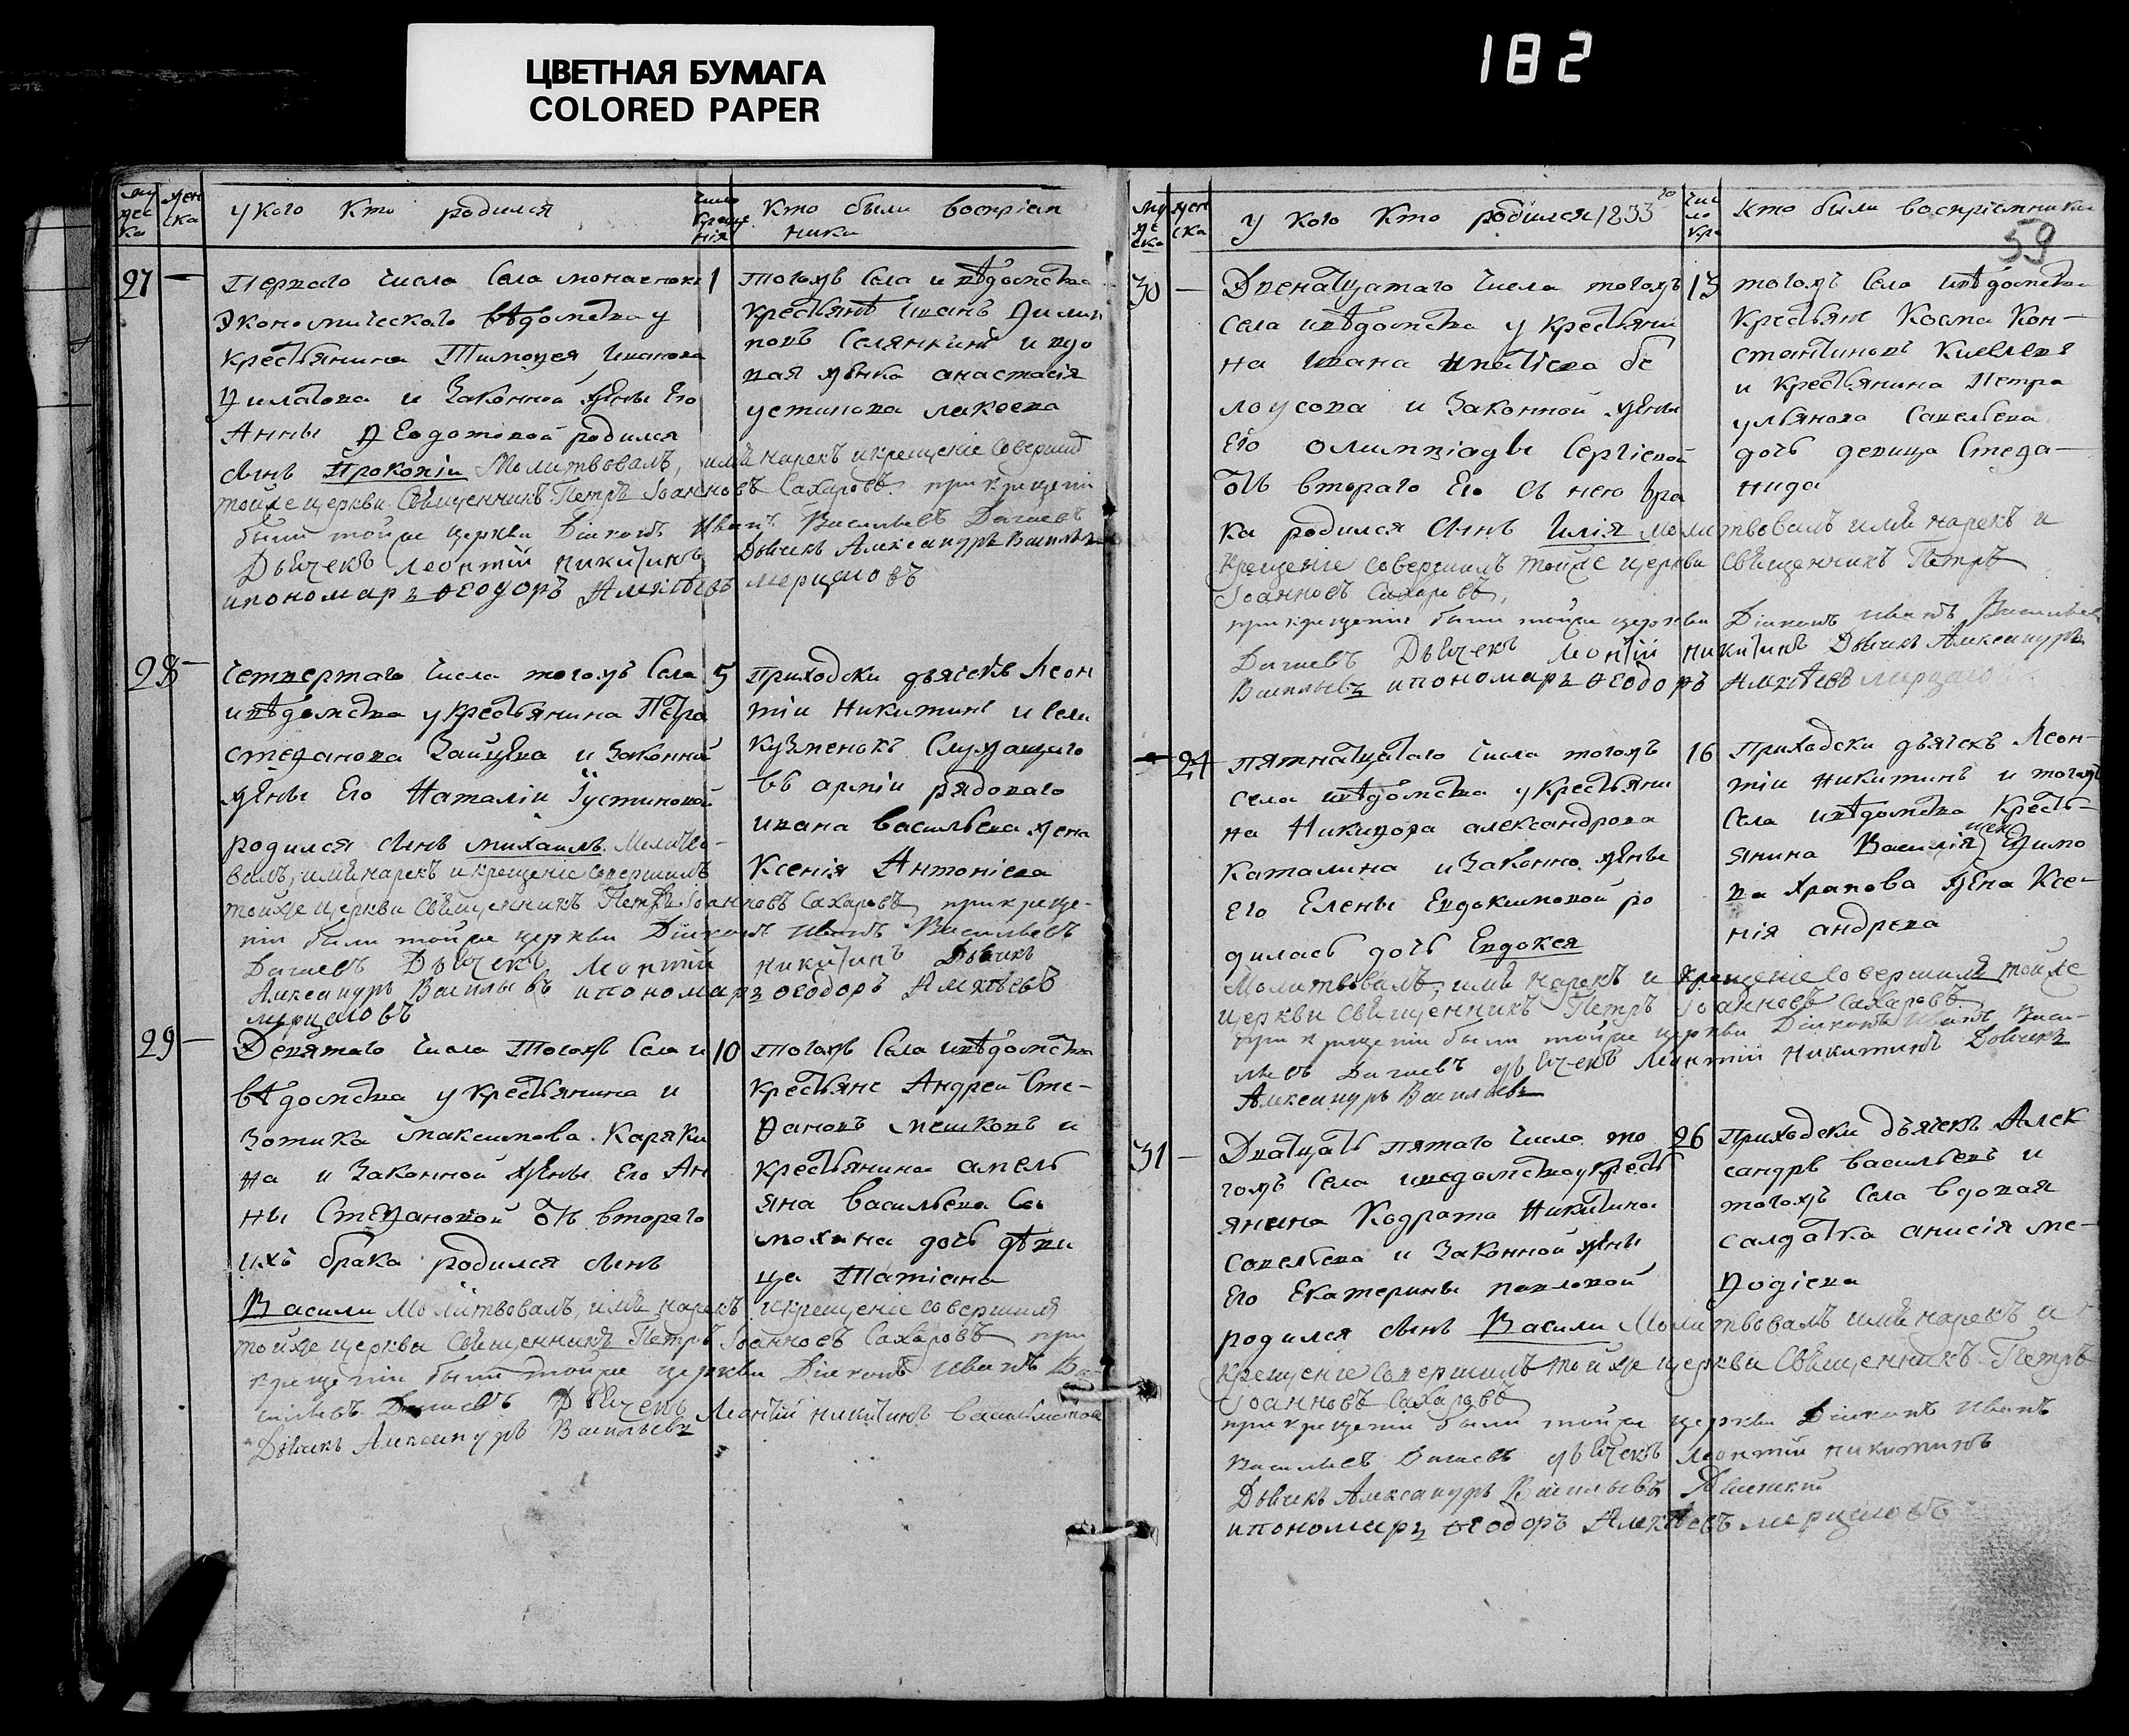 ЦВЕТНАЯ БУМАГА
COLORED PAPER
182
муж
ска
жен
ска
у кого кто родился
число
креще
нія
кто были воспріем
ники
27 —
Перваго числа села монастска
Экономическаго вѣдомства у
крестьянина Тимофея Иванова
Филатова и законной жены Его
Анны Феодотовой родился
сынъ Прокопіи Молитвовалъ, имя нарекъ и крещеніе совершилъ
тойже церкви Священникъ Петръ Іоанновъ Сахаровъ. при крещеніи
были тойже церкви Діаконъ Иванъ Васильевъ Дагаевъ
Дьячекъ Леонтій Никитинъ Дьячекъ Александръ Васильевъ
ипономарь Ѳеодоръ Алексѣевъ Мерцаловъ
1
тогожъ села и вѣдомства
крестьянъ Иванъ Филип
повъ Селянкинъ и вдо
вая женка анастасія
устинова макеева
28 —
Четвертаго числа тогожъ села
и вѣдомства у крестьянина Петра
Стефанова Зайцева и законной
жены Его Наталіи Іустиновой
родился сынъ михаилъ. Молитво-
валъ, имя нарекъ и крещеніе совершилъ
тойже церкви Священникъ Петръ Іоанновъ Сахаровъ, при креще-
ніи были тойже церкви Діаконъ Иванъ Васильевъ
Дагаевъ Дьячекъ Леонтій Никитинъ Дьячекъ
Александръ Васильевъ ипономарь Ѳеодоръ Алексѣевъ
мерцаловъ
5
приходски дьячекъ Леон
тіи Никитинъ и села
кузменокъ служащаго
въ арміи рядоваго
ивана васильева жена
Ксенія Антоніева
29 —
Девятаго числа Тогожъ села и
вѣдомства у крестьянина и
Зотика максимова. Каряки
на и законной жены его Ан
ны Стефановой отъ втораго
ихъ брака родился сынъ
Васили Молитвовалъ, имя нарекъ и крещеніе совершилъ
тойже церкви Священникъ Петръ Іоанновъ Сахаровъ при
крещеніи были тойже церкви Діаконъ Иванъ Ва-
сильевъ Дагаевъ Дьячекъ Леонтій Никитинъ
Дьячекъ Александръ Васильевъ
10
тогожъ села и вѣдомства
крестьяне Андреи Сте-
фановъ мешковъ и
крестьянина амель
яна васильева Са
мохина дочь дѣви
ца Татіана
муж
ска
жен
ска
у кого кто родился 1833го
чис
ло
кре
кто были воспріемники
59
30 —
Двенатцатаго числа тогожъ
села и вѣдомства у крестьяни
на ивана ипатіева бе
лоусова и законной жены
его олимпіады Сергіевой
отъ втораго Его съ нею бра
ка родился сынъ Илія Молитвовалъ имя нарекъ и
крещеніе совершилъ тойже церкви Священникъ Петръ
Іоанновъ Сахаровъ,
при крещеніи были тойже церкви Діаконъ Иванъ Васильев
Дагаевъ Дьячекъ Леонтій Никитинъ Дьячекъ Александръ
Васильевъ ипономарь Ѳеодоръ Алексѣевъ мерцалов
13
тогожъ села и вѣдомства
крестьян Косма Кон-
стантиновъ Киселевъ
и крестьянина Петра
ульянова Савельева
дочь девица Стефа-
нида
— 24
пятнатцатаго числа тогожъ
села и вѣдомства у крестьяни
на Никифора александрова
Каталина и законно жены
его Елены Евдокимовой ро
дилась дочь Евдокея
Молитвовалъ, имя нарекъ и крещеніе совершилъ тойже
церкви Священникъ Петръ Іоанновъ Сахаровъ.
при крещеніи были тойже церкви Діаконъ Иванъ Васи-
льевъ Дагаевъ дьячекъ Леонтій Никитинъ Дьячекъ
Александръ Васильевъ
16
приходски дьячекъ Леон-
тіи никитинъ и тогожъ
села и вѣдомства кресть-
янина Василія Филипо
ва Храпова жена Ксе-
нія андрева
31 —
Дватцать пятаго число то
гожъ села и ведомства у кресть
янина Кодрата Никитина
савельева и законной жены
его Екатерины павловой
родился сынъ Васили Молитвовалъ имя нарекъ и
крещеніе совершилъ тойже церкви Священникъ Петръ
Іоанновъ Сахаровъ
при крещеніи были тойже церкви Діаконъ Иванъ
Васильевъ Дагаевъ дьячекъ Леонтіи никитинъ
Дьячекъ Александръ Васильевъ
ипономарь Ѳеодоръ Алексѣевъ мерцаловъ
26
Приходски дьячекъ Алек
сандръ васильевъ и
тогожъ села вдовая
салдатка анисія ме-
фодіева